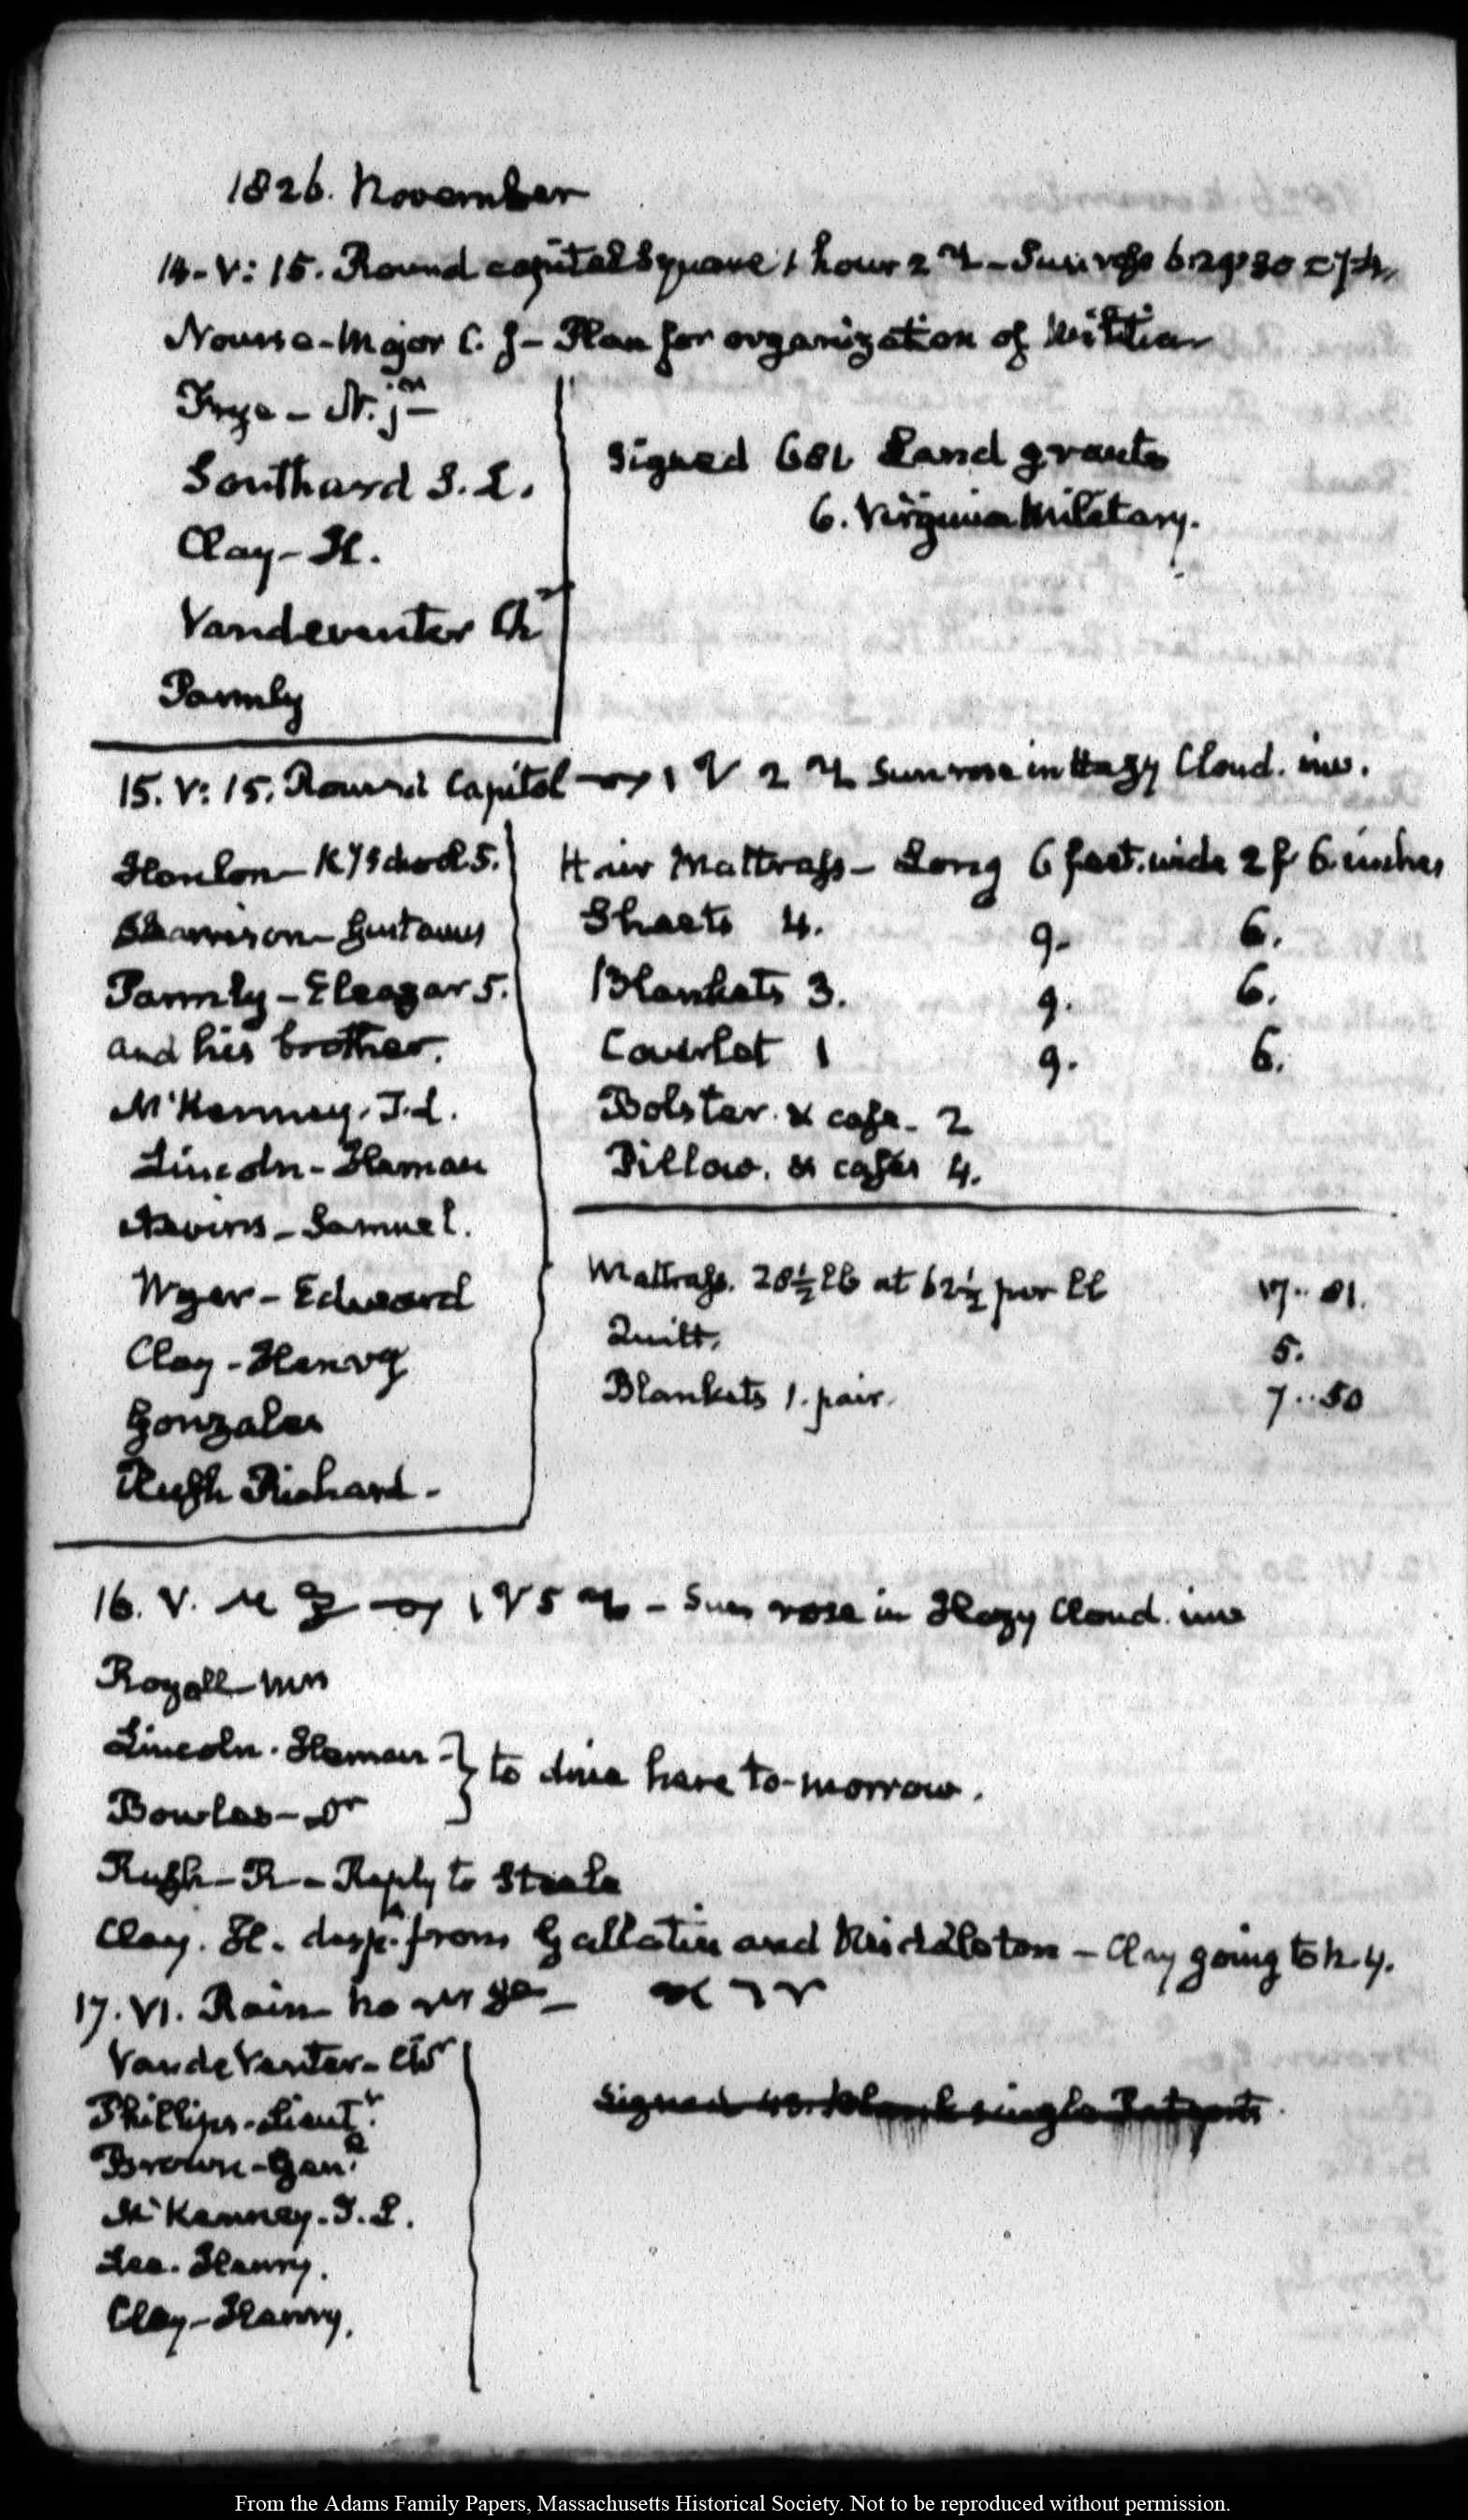 1826. November
14-V: 15. Round capitol Square 1 hour 2 - Sun rose 6:29:30
Nourse-Major C. J- Plan for organization of Militia
Frye - N. jr
Southard S. L.
Clay - H.
Vandeventer Chr
Parmly
Signed 681 Land grants
6. Virginia Military.
15. V: 15. Round Capitol 1 2 Sun rose in Hazy Cloud. inv.
Hanlon- School 5.
Harrison- Gustavus
Parmly - Eleazar 5.
and his brother.
McKenney. T. L.
Lincoln - Heman
Nevins - Samuel.
Wyer - Edward
Clay - Henry
Gonzales
Rush Richard -
Hair Mattrass - Long 6 feet. wide 2 f 6 inches
Sheets 4. 9. 6.
Blankets 3. 9. 6.
Coverlet 1 9. 6.
Bolster. & case - 2
Pillow. & cases 4.
Mattrass. 28½ lb at 62½ per lb 17.. 81.
Quilt. 5.
Blankets 1. pair. 7.. 50
16. V. 1 5 - Sun rose in Hazy Cloud. inv
Royall - Mrs
Lincoln. Heman } to dine here to-morrow.
Bowles - Dr
Rush - R - Reply to Steele
Clay. H. desp. from Gallatin and Middleton - Clay going to
17. VI. Rain no
VandeVenter - Chr
Phillips - Lieut.
Brown - Genl.
McKenney. T. L.
Lee. Henry.
Clay - Henry.
Signed 48. blank single Patents.
From the Adams Family Papers, Massachusetts Historical Society. Not to be reproduced without permission.